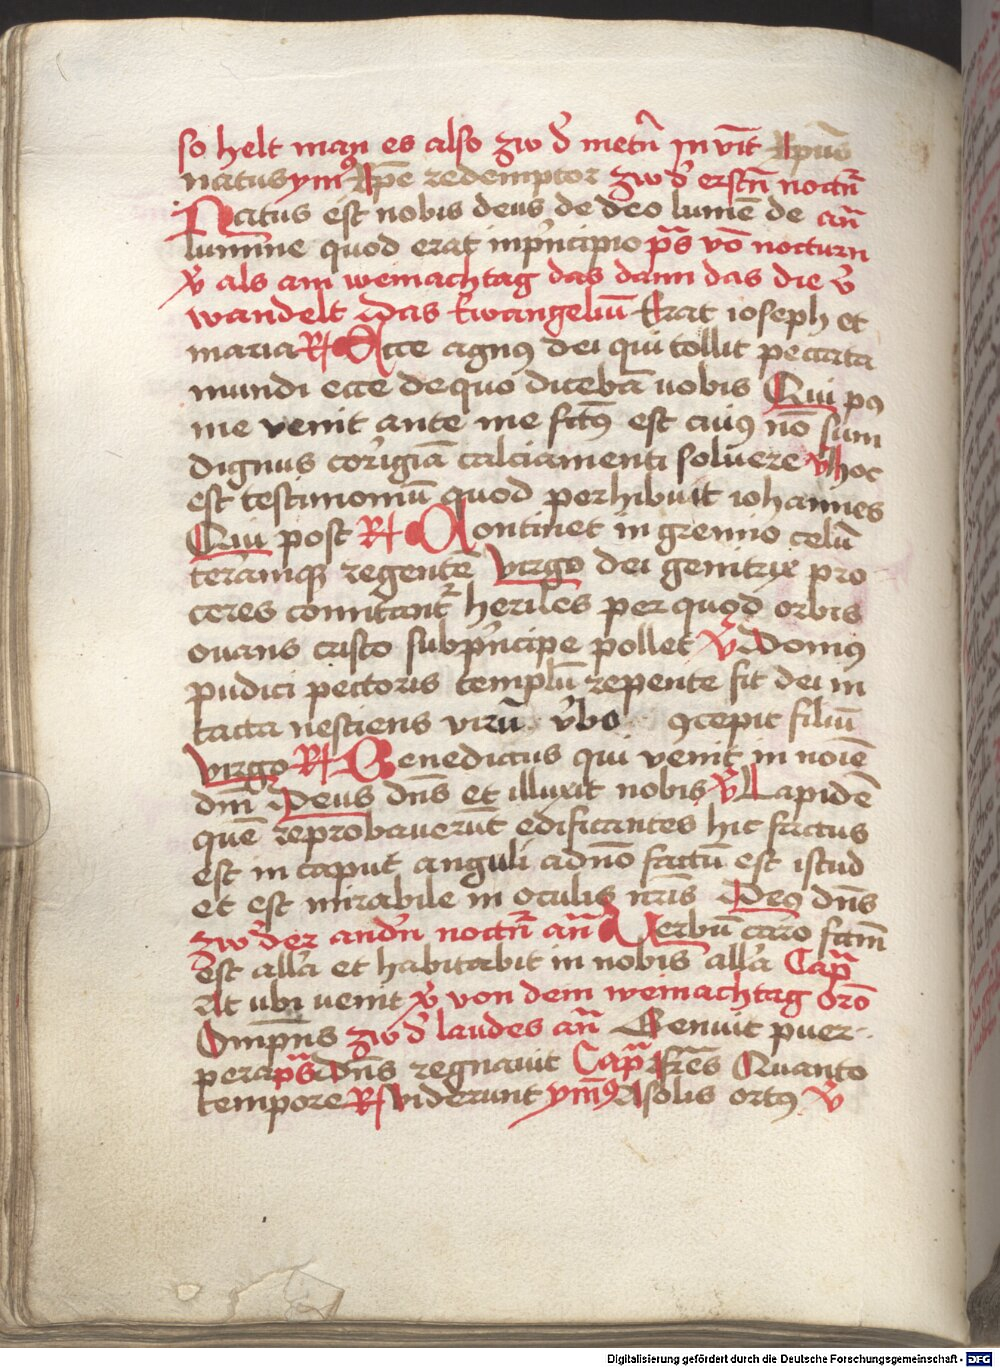 so helt man es also zw d̕ metn̄ Invīt Xpūs
natus ymꝰ Xp̄e redemptor zw d̕ erstn̄ noctn̄
Natus est nobis deus de deo lumē de an̄
lumine quod erat inp̕ncipio ps̄ vō nocturn
v̄ als am weinachtag das dann das die v̄
wandelt Das Ewangeliū Erat ioseph et
maria R Ecce agnꝰ dei qui tollit peccata
mundi ecce de quo dicebā uobis Qui pꝰ
me venit ante me fc̄tꝰ est cuiꝰ nō sum
dignus cor̕igiā calciamenti soluere v̄ hoc
est testimoniū quod perhibuit iohannes
Qui post R Continet in gremio celū
terramqꝫ regentē Virgo dei genitrix pro
ceres comitant̕ heriles per quod orbis
ouans cristo subp̕ncipe pollet v̄ Domus
pudici pectoris templū repente fit dei in
tacta nesciens virū v̕bo ꝯcepit filiū
virgo R Benedictus qui venit in noīe
dm̄ Deus dn̄s et illuxit nobis v̄ Lapidē
quē reprobauerūt edificantes hic factus
est in caput anguli adnō factū est istud
et est mirabile in oculis nr̄is Deꝰ dn̄s
zw der andn̄ noctn̄ an̄ Verbū caro fcm̄
est all̕a et habitabit in nobis all̕a Cap̄
At ubi uenit v̄ von dem weinachtag orō
Omp̄ns zw d̕ laudes an̄ Genuit puer-
pera ps̄ Dn̄s regnauit Cap̄ fr̄es Quanto
tempore R Viderunt ymꝰ A solis ortꝰ v̄
Digitalisierung gefördert durch die Deutsche Forschungsgemeinschaft - DFG